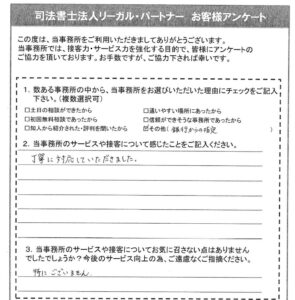 司法書士法人リーガル・パートナー お客様アンケート
この度は、当事務所をご利用いただきましてありがとうございます。
当事務所では、接客力・サービス力を強化する目的で、皆様にアンケートの
ご協力を頂いております。お手数ですが、ご協力下されば幸いです。
1. 数ある事務所の中から、当事務所をお選びいただいた理由にチェックをご記入
下さい。(複数選択可)
□土日の相談ができたから □通いやすい場所にあったから
□初回無料相談であったから □信頼ができそうな事務所であったから
□知人から紹介された・評判を聞いたから ☑その他( 銀行からの指定 )
2. 当事務所のサービスや接客について感じたことをご記入ください。
丁寧に対応していただきました。
3. 当事務所のサービスや接客についてお気に召さない点はありません
でしたでしょうか?今後のサービス向上の為、ご遠慮なくご指摘ください。
特にございません